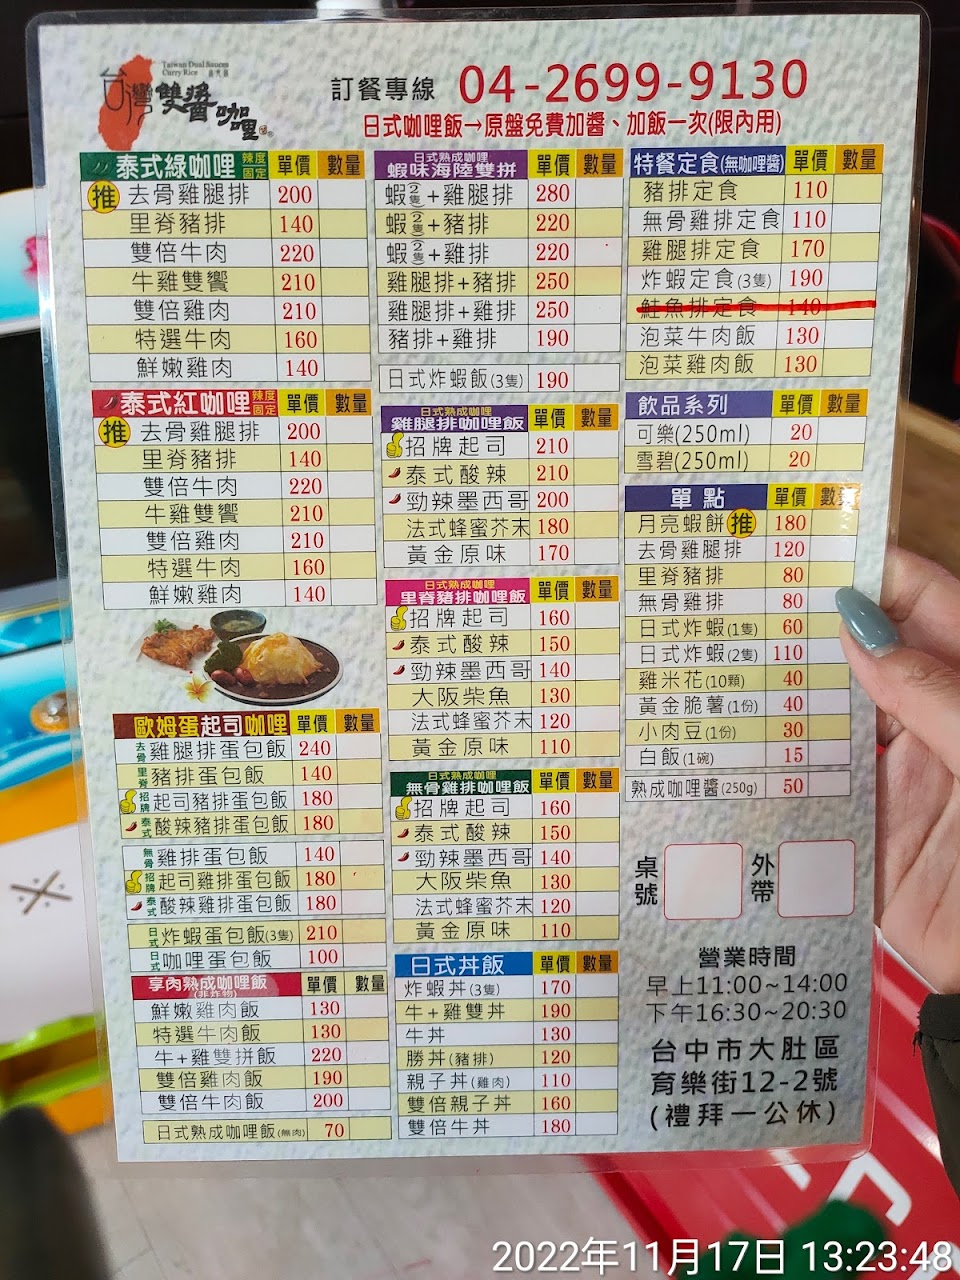 Taiwan Dual Sauces
Curry Rice
台灣雙醬咖哩
訂餐專線 04-2699-9130
日式咖哩飯→原盤免費加醬、加飯一次(限內用)
泰式綠咖哩 辣度固定 單價 數量
推 去骨雞腿排 200
里脊豬排 140
雙倍牛肉 220
牛雞雙饗 210
雙倍雞肉 210
特選牛肉 160
鮮嫩雞肉 140
泰式紅咖哩 辣度固定 單價 數量
推 去骨雞腿排 200
里脊豬排 140
雙倍牛肉 220
牛雞雙饗 210
雙倍雞肉 210
特選牛肉 160
鮮嫩雞肉 140
歐姆蛋起司咖哩 單價 數量
去骨雞腿排蛋包飯 240
里脊豬排蛋包飯 140
招牌起司豬排蛋包飯 180
泰式酸辣豬排蛋包飯 180
無骨雞排蛋包飯 140
招牌起司雞排蛋包飯 180
泰式酸辣雞排蛋包飯 180
日式炸蝦蛋包飯(3隻) 210
日式咖哩蛋包飯 100
享肉熟成咖哩飯 單價 數量
(非炸物)
鮮嫩雞肉飯 130
特選牛肉飯 130
牛+雞雙拼飯 220
雙倍雞肉飯 190
雙倍牛肉飯 200
日式熟成咖哩飯(無肉) 70
日式熟成咖哩
蝦味海陸雙拼 單價 數量
蝦(2隻)+雞腿排 280
蝦(2隻)+豬排 220
蝦(2隻)+雞排 220
雞腿排+豬排 250
雞腿排+雞排 250
豬排+雞排 190
日式炸蝦飯(3隻) 190
日式熟成咖哩
雞腿排咖哩飯 單價 數量
招牌起司 210
泰式酸辣 210
勁辣墨西哥 200
法式蜂蜜芥末 180
黃金原味 170
日式熟成咖哩
里脊豬排咖哩飯 單價 數量
招牌起司 160
泰式酸辣 150
勁辣墨西哥 140
大阪柴魚 130
法式蜂蜜芥末 120
黃金原味 110
日式熟成咖哩
無骨雞排咖哩飯 單價 數量
招牌起司 160
泰式酸辣 150
勁辣墨西哥 140
大阪柴魚 130
法式蜂蜜芥末 120
黃金原味 110
日式丼飯 單價 數量
炸蝦丼(3隻) 170
牛+雞雙丼 190
牛丼 130
勝丼(豬排) 120
親子丼(雞肉) 110
雙倍親子丼 160
雙倍牛丼 180
特餐定食(無咖哩醬) 單價 數量
豬排定食 110
無骨雞排定食 110
雞腿排定食 170
炸蝦定食(3隻) 190
鮭魚排定食 140
泡菜牛肉飯 130
泡菜雞肉飯 130
飲品系列 單價 數量
可樂(250ml) 20
雪碧(250ml) 20
單點 單價 數量
月亮蝦餅 推 180
去骨雞腿排 120
里脊豬排 80
無骨雞排 80
日式炸蝦(1隻) 60
日式炸蝦(2隻) 110
雞米花(10顆) 40
黃金脆薯(1份) 40
小肉豆(1份) 30
白飯(1碗) 15
熟成咖哩醬(250g) 50
桌號 外帶
營業時間
早上11:00~14:00
下午16:30~20:30
台中市大肚區
育樂街12-2號
(禮拜一公休)
2022年11月17日 13:23:48